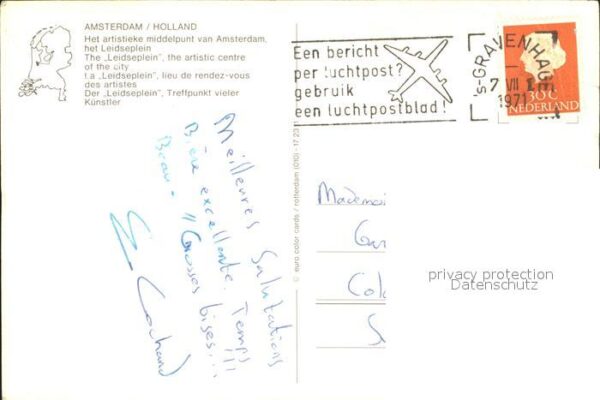 AMSTERDAM / HOLLAND
Het artistieke middelpunt van Amsterdam,
het Leidseplein
The „Leidseplein”, the artistic centre
of the city
La „Leidseplein”, lieu de rendez-vous
des artistes
Der „Leidseplein”, Treffpunkt vieler
Künstler
Een bericht
per luchtpost?
gebruik
een luchtpostblad!
's-GRAVENHAGE
7 VII
1971
30 C
NEDERLAND
© euro color cards / rotterdam (010) - 17 23 1
Meilleures Salutations
Bière excellente. Temps
Beau - Grosses bises...
Mademoi
Col
privacy protection
Datenschutz